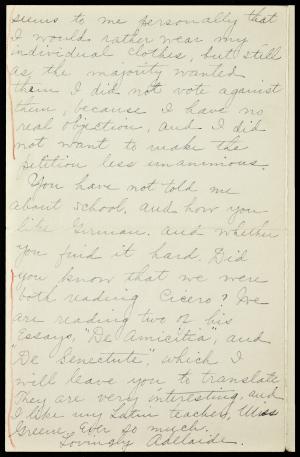 seems to me personally that
I would rather wear my
individual clothes, but still
as the majority wanted
them I did not vote against
them, because I have no
real objection, and I did
not want to make the
petition less unanimous.
You have not told me
about school, and how you
like German. and whether
you find it hard. Did
you know that we were
both reading Cicero? We
are reading two of his
Essays, "De Amicitia", and
"De Senectute", which I
will leave you to translate
They are very interesting, and
I like my Latin teacher, Miss
Greene, Ever so much.
Lovingly Adelaide.